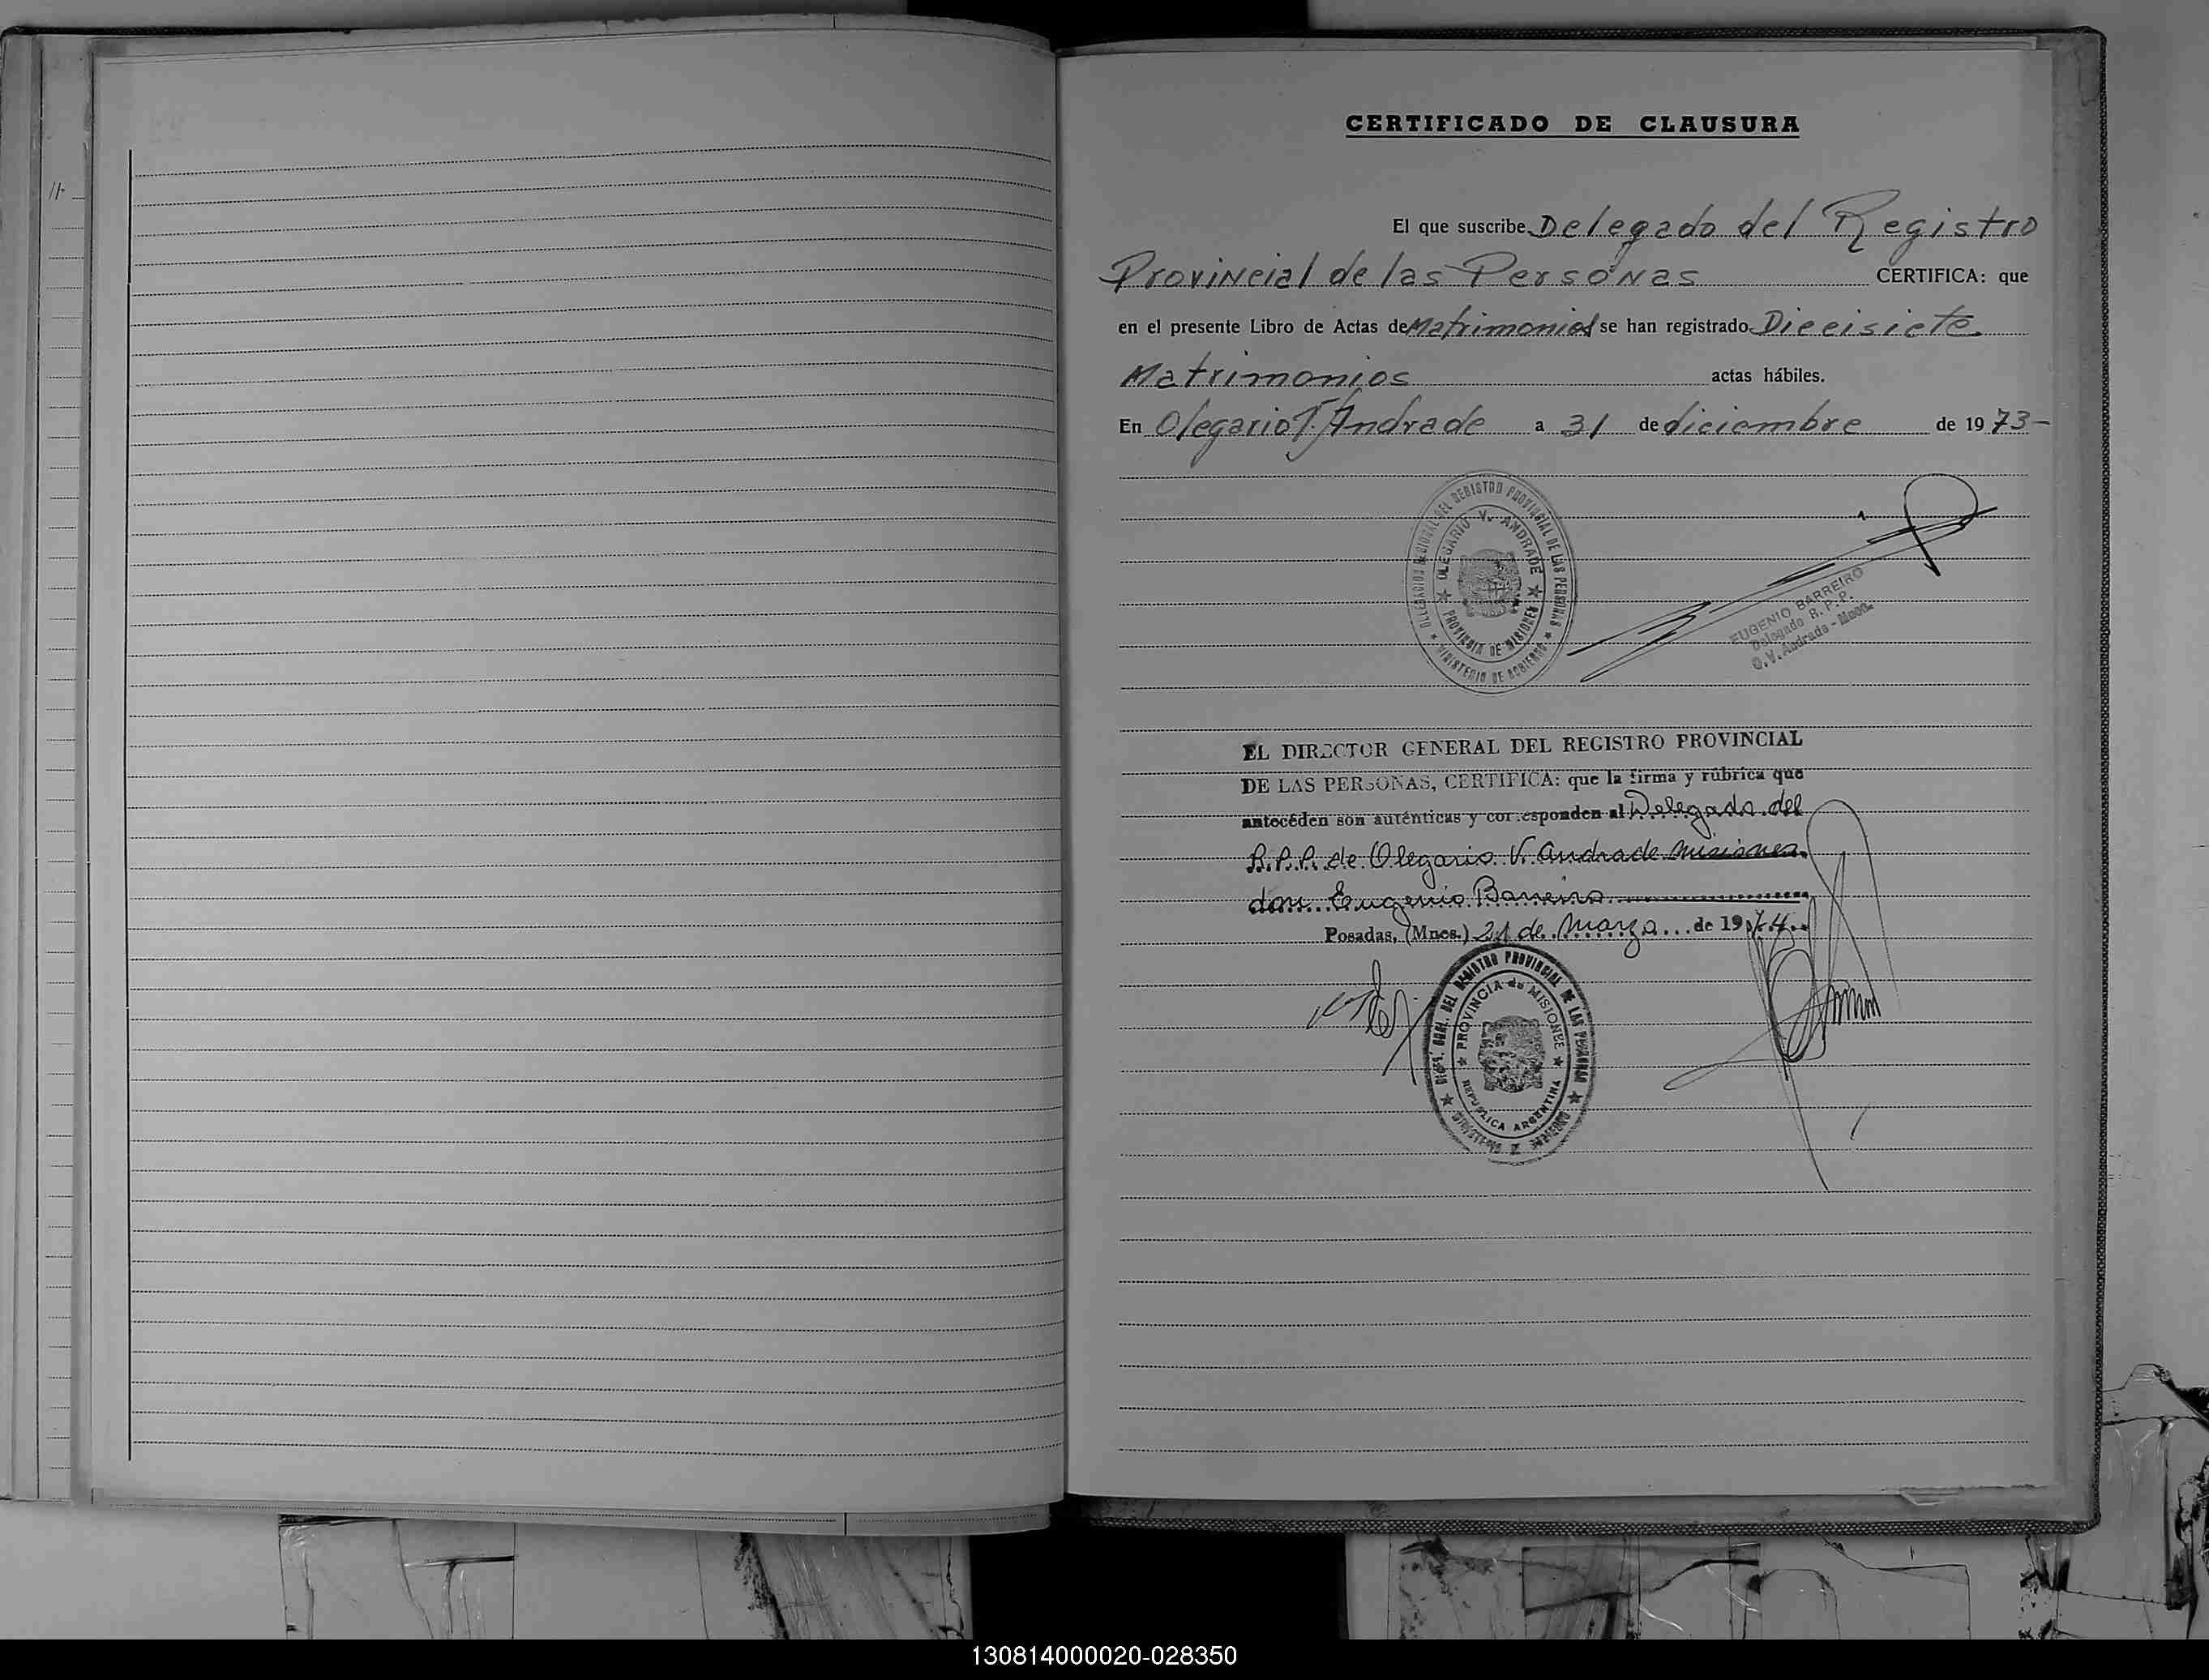 CERTIFICADO DE CLAUSURA
El que suscribe Delegado del Registro
Provincial de las Personas CERTIFICA: que
en el presente Libro de Actas de Matrimonios se han registrado Diecisiete
Matrimonios actas hábiles.
En Olegario V. Andrade a 31 de diciembre de 1973-
DELEGACION REGIONAL DEL REGISTRO PROVINCIAL DE LAS PERSONAS
MINISTERIO DE GOBIERNO
OLEGARIO V. ANDRADE
PROVINCIA DE MISIONES
EUGENIO BARREIRO
Delegado R. P. P.
O. V. Andrade - Mnes.
EL DIRECTOR GENERAL DEL REGISTRO PROVINCIAL
DE LAS PERSONAS, CERTIFICA: que la firma y rúbrica que
antecéden son auténticas y corresponden al Delegado del
R.P.P. de Olegario V. Andrade Misiones
don Eugenio Barreiro
Posadas, (Mnes.) 21 de Marzo de 1974
DIREC. GRAL. DEL REGISTRO PROVINCIAL DE LAS PERSONAS
PROVINCIA de MISIONES
REPUBLICA ARGENTINA
130814000020-028350